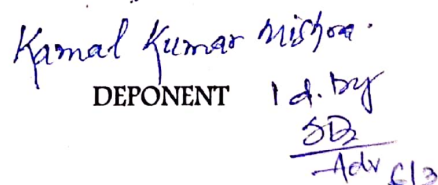 Kamal Kumar Mishra.
DEPONENT Id. by
Adv